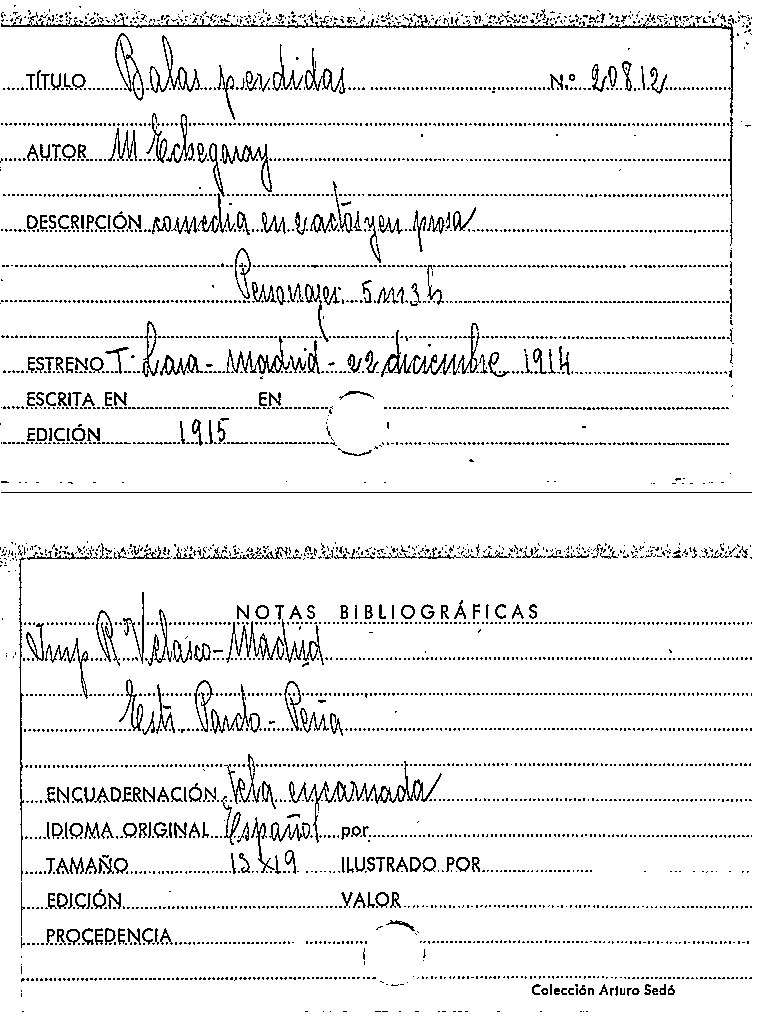 TÍTULO Balas perdidas N.º 20812
AUTOR M Echegaray
DESCRIPCIÓN comedia en 2 actos y en prosa
Personajes: 5 m 3 h
ESTRENO T. Lara - Madrid - 22 diciembre 1914
ESCRITA EN EN
EDICIÓN 1915
NOTAS BIBLIOGRÁFICAS
Imp R Velasco - Madrid
Estr. Pardo - Peña
ENCUADERNACIÓN Tela encarnada
IDIOMA ORIGINAL Español por
TAMAÑO 13 x 19 ILUSTRADO POR
EDICIÓN VALOR
PROCEDENCIA
Colección Arturo Sedó